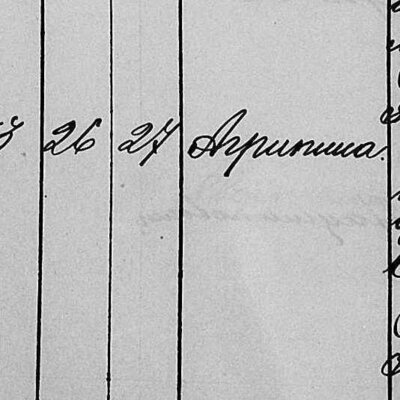 26 27 Агрипина.